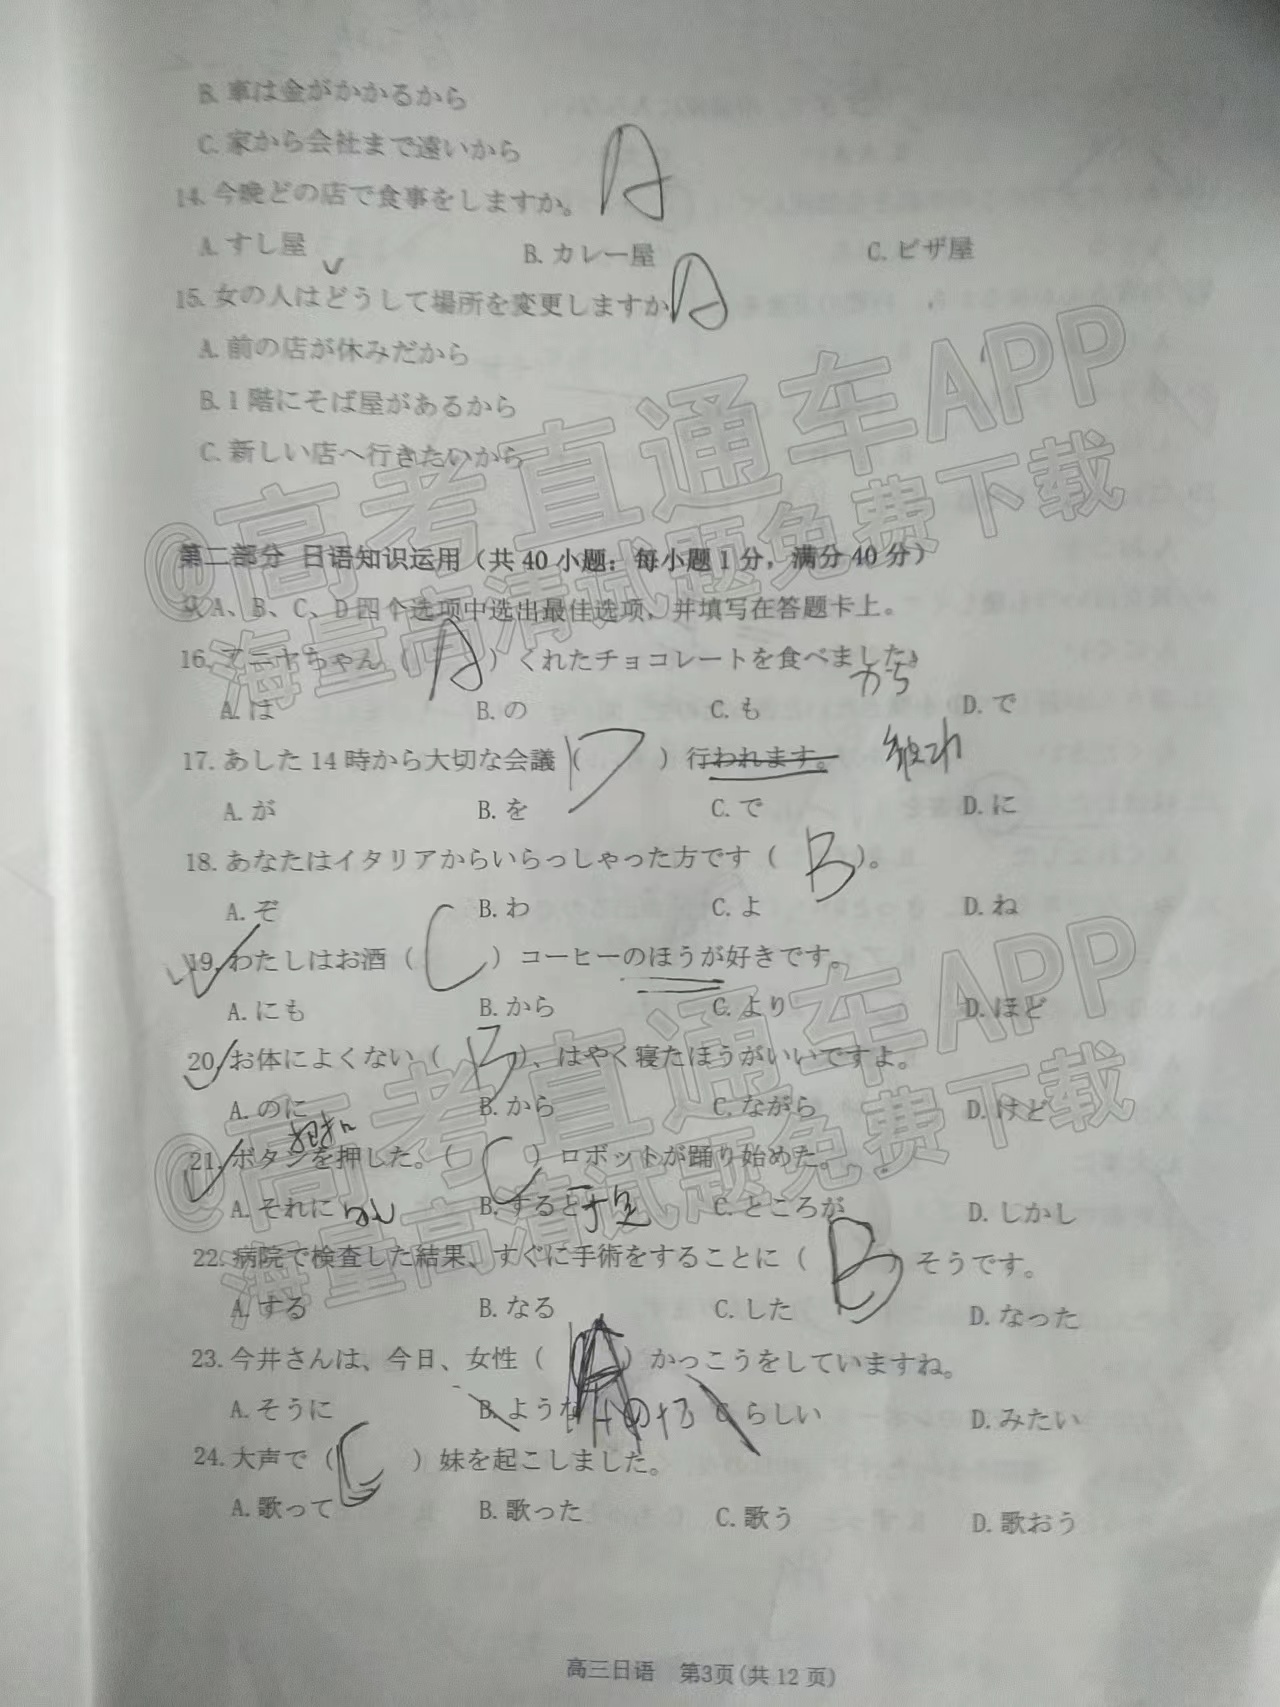 B. 車は金がかかるから
C. 家から会社まで遠いから
14. 今晩どの店で食事をしますか。 A
A. すし屋 B. カレー屋 C. ピザ屋
15. 女の人はどうして場所を変更しますか A
A. 前の店が休みだから
B. 1階にそば屋があるから
C. 新しい店へ行きたいから
第二部分 日语知识运用（共40小题；每小题1分，满分40分）
从A、B、C、D四个选项中选出最佳选项，并填写在答题卡上。
16. アーニャちゃん（ A ）くれたチョコレートを食べました。
から
A. は B. の C. も D. で
17. あした14時から大切な会議（ D ）行われます。
A. が B. を C. で D. に
18. あなたはイタリアからいらっしゃった方です（ B ）。
A. ぞ B. わ C. よ D. ね
19. わたしはお酒（ C ）コーヒーのほうが好きです。
A. にも B. から C. より D. ほど
20. お体によくない（ B ）、はやく寝たほうがいいですよ。
A. のに B. から C. ながら D. けど
21. ボタンを押した。（ C ）ロボットが踊り始めた。
A. それに B. すると 于是 C. ところが D. しかし
22. 病院で検査した結果、すぐに手術をすることに（ B ）そうです。
A. する B. なる C. した D. なった
23. 今井さんは、今日、女性（ A ）かっこうをしていますね。
A. そうに B. ような C. らしい D. みたい
24. 大声で（ C ）妹を起こしました。
A. 歌って B. 歌った C. 歌う D. 歌おう
高三日语 第3页(共12页)
@高考直通车APP
海量高清试题免费下载
@高考直通车APP
海量高清试题免费下载